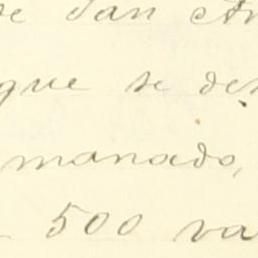 de San An
que se de
manado,
500 va